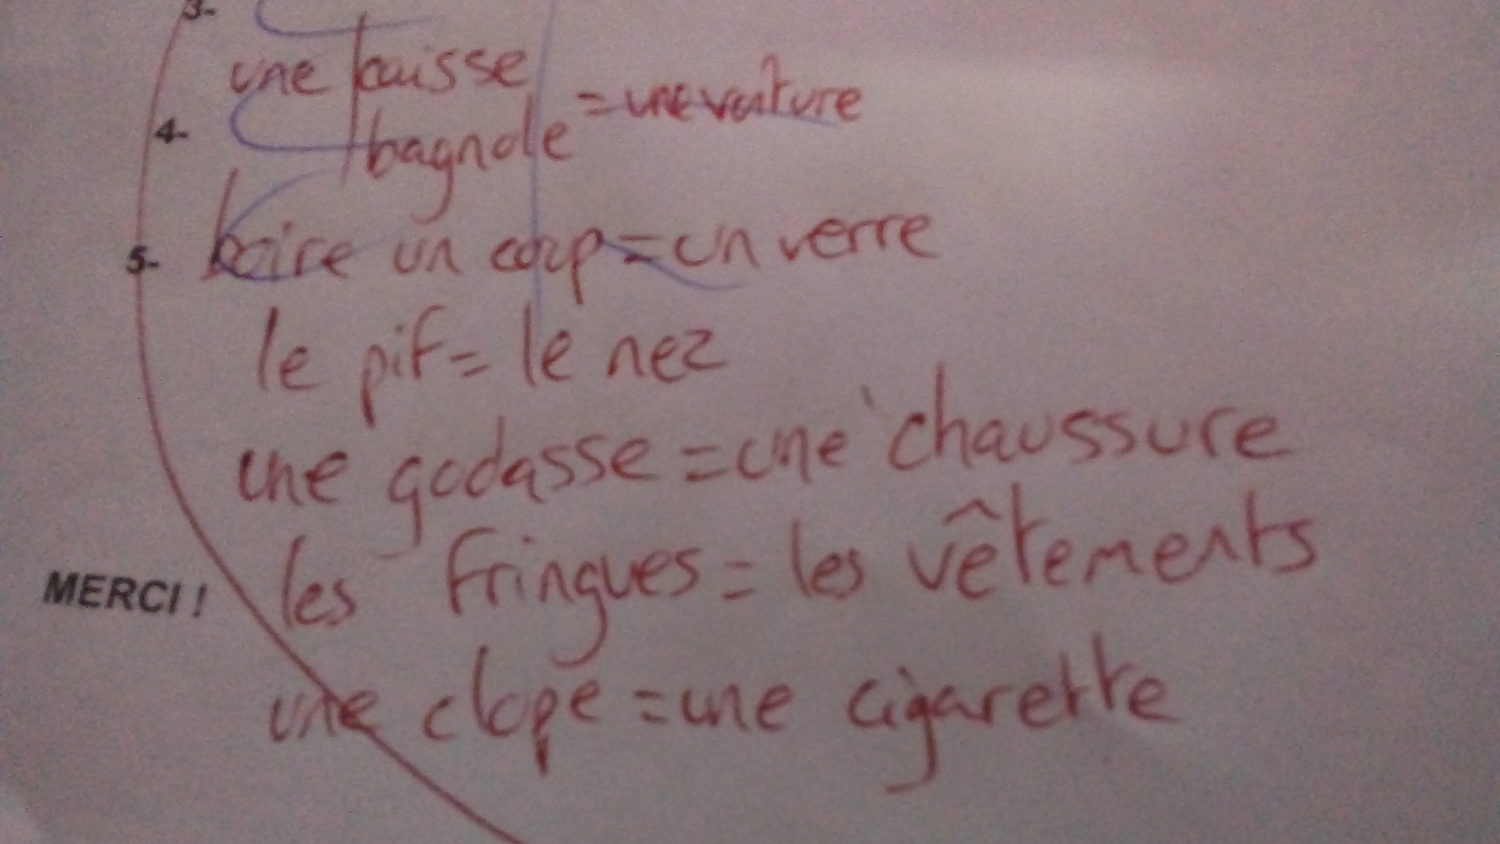 3-
une caisse
= une voiture
4- bagnole
5- boire un coup = un verre
le pif = le nez
une godasse = une chaussure
les fringues = les vêtements
MERCI !
une clope = une cigarette